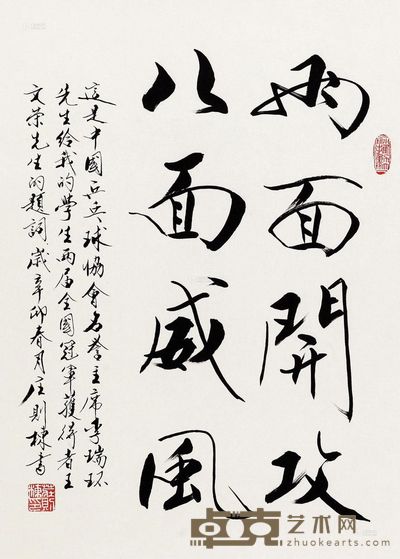 兩面開攻
八面威風
這是中國乒乓球協會名誉主席李瑞环
先生给我的學生两届全國冠軍獲得者王
文荣先生的題詞歲辛卯春月庄則棟書
卓克艺术网
zhuokearts.com